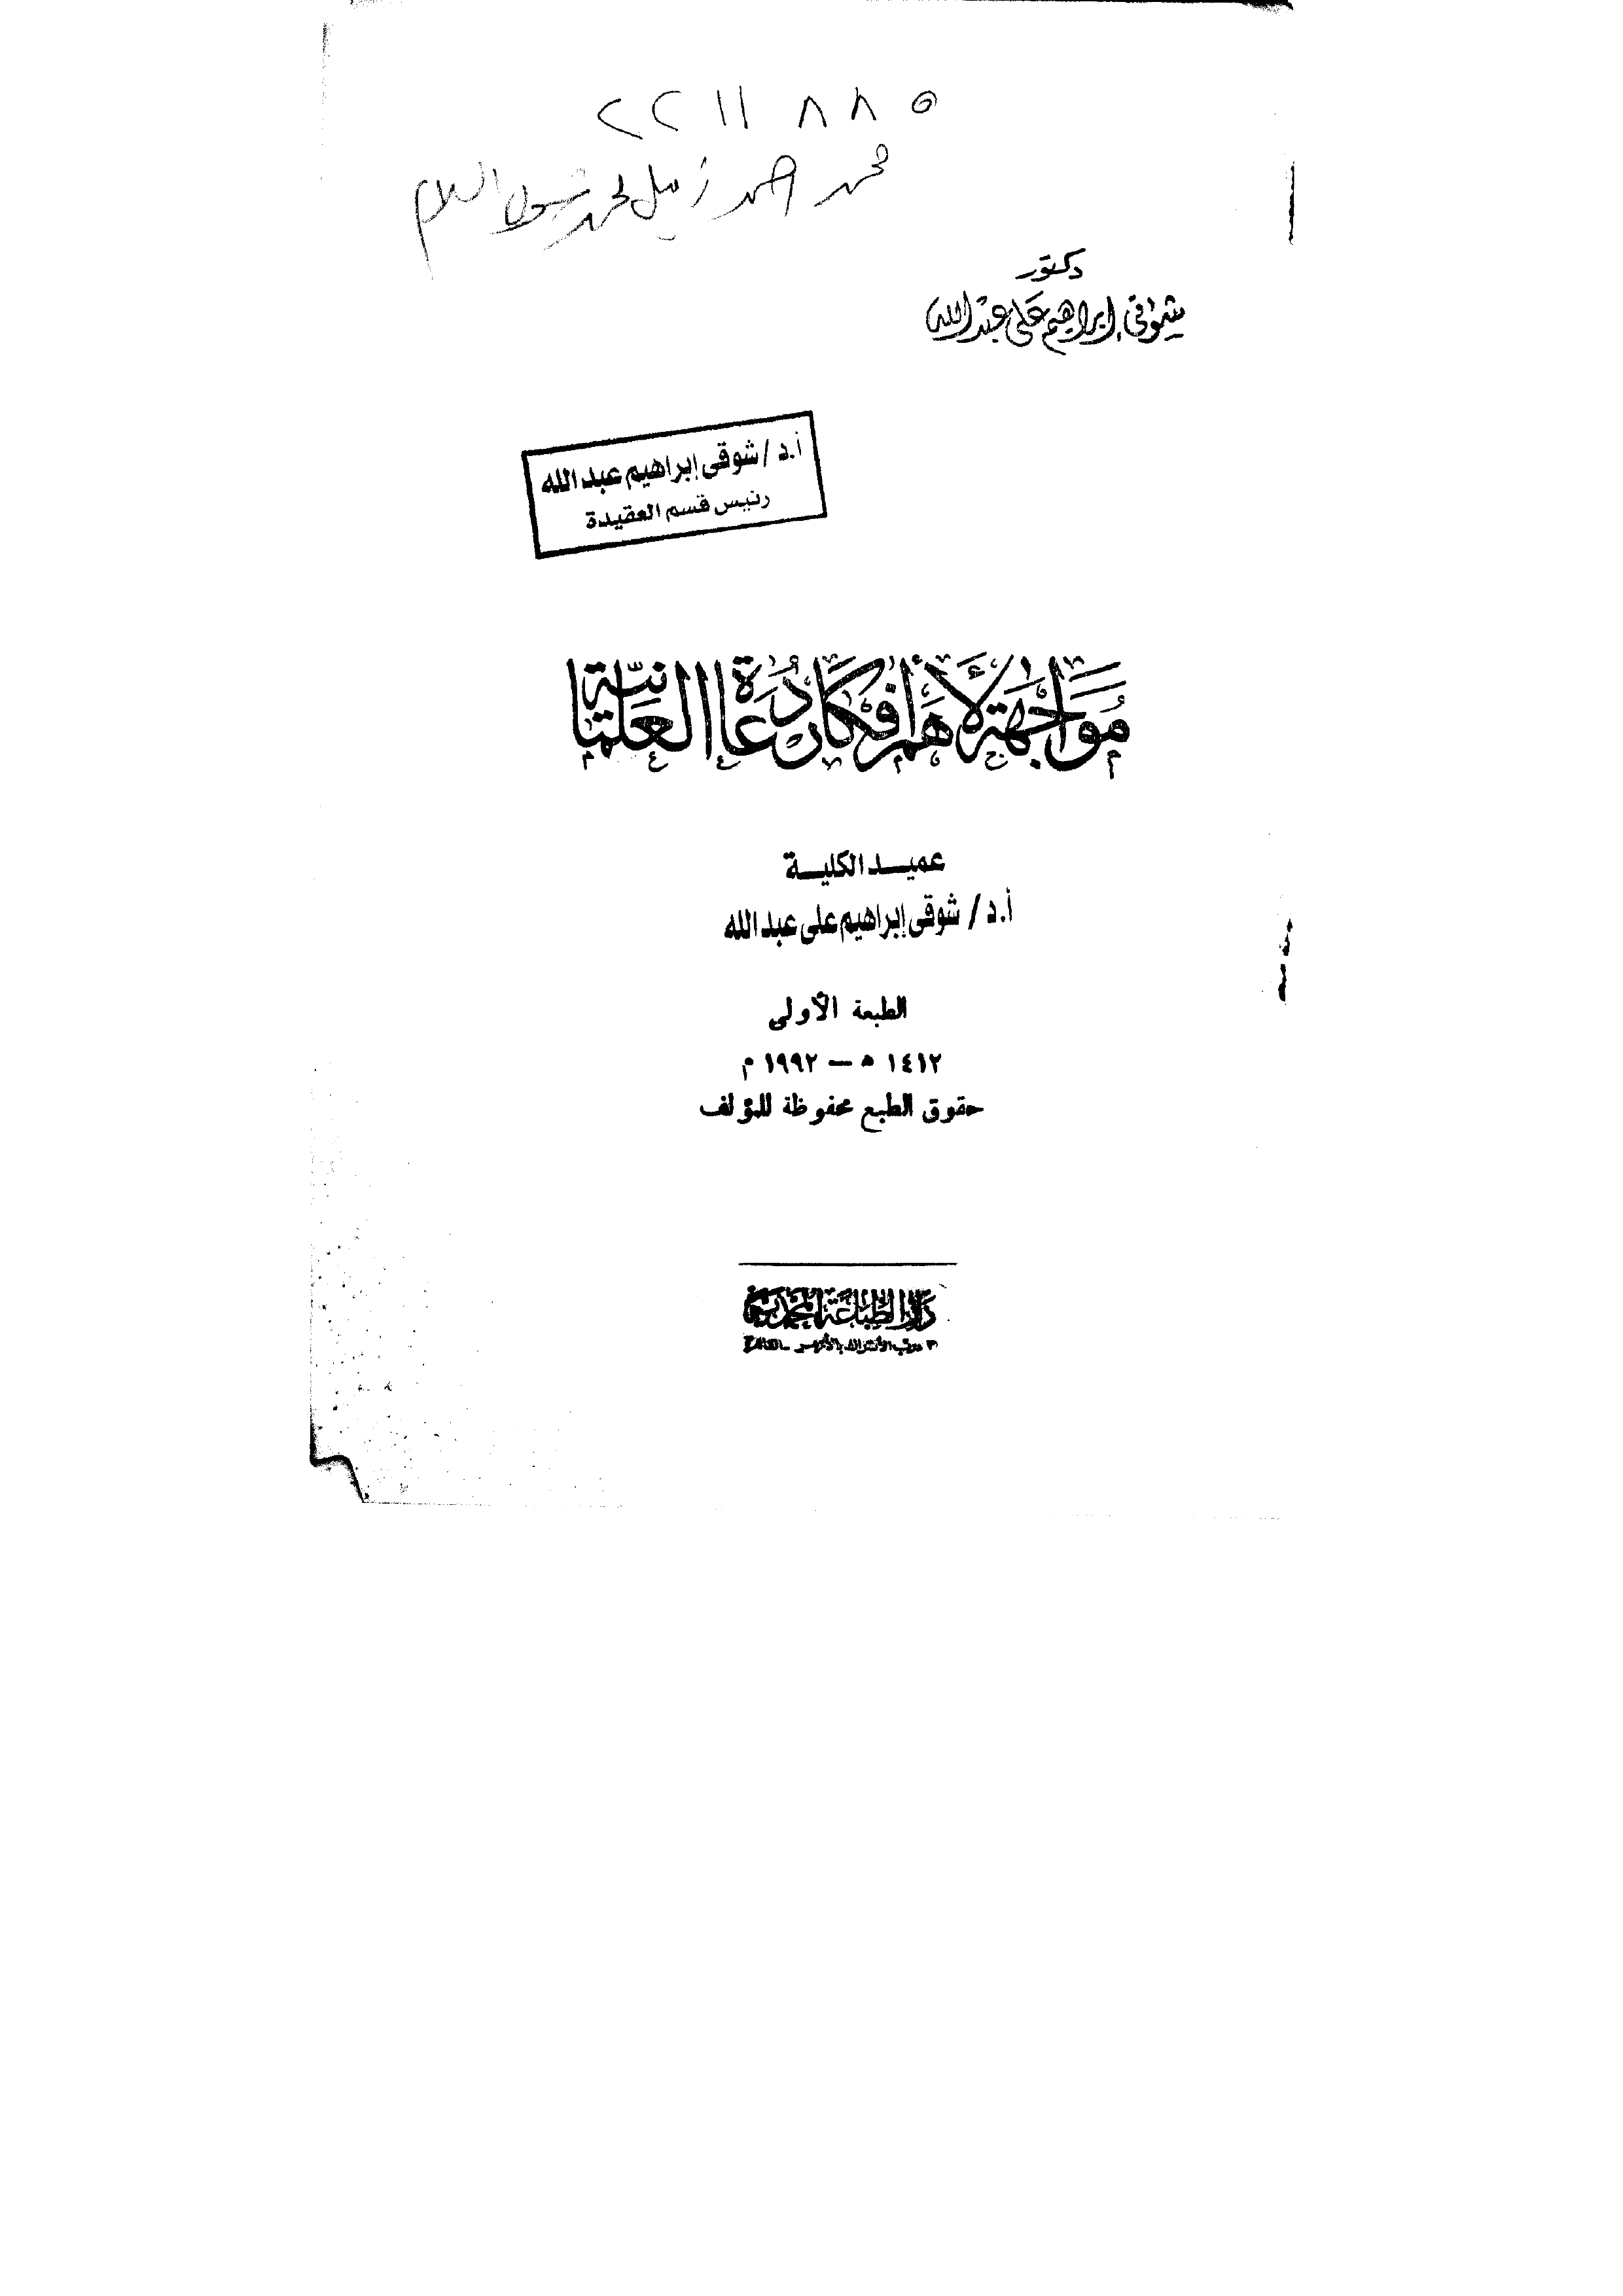 ٢٢١١٨٨٥
محمد احمد
دكتور
شوقى إبراهيم على عبد الله
أ.د / شوقى إبراهيم عبد الله
رئيس قسم العقيدة
مواجهة لأهم أفكار دعاة العلمانية
عميد الكلية
أ.د / شوقى إبراهيم على عبد الله
الطبعة الأولى
١٤١٢ ه — ١٩٩٢ م
حقوق الطبع محفوظة للمؤلف
دار الطباعة المحمدية